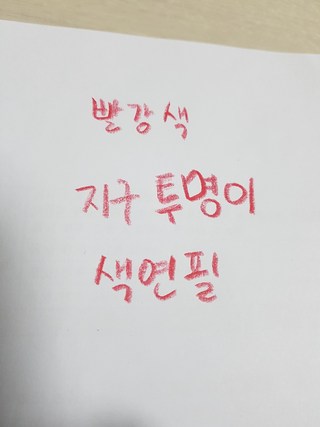 빨강색
지구 투명이
색연필